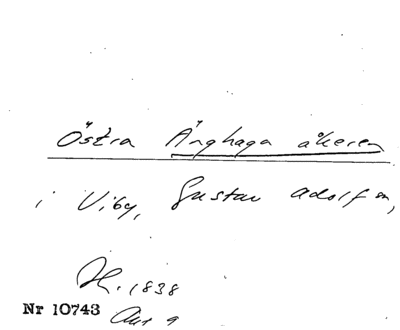 Östra Änghaga åkeren
i Viby, Gustav Adolf sn,
H. 1838
Nr 10743